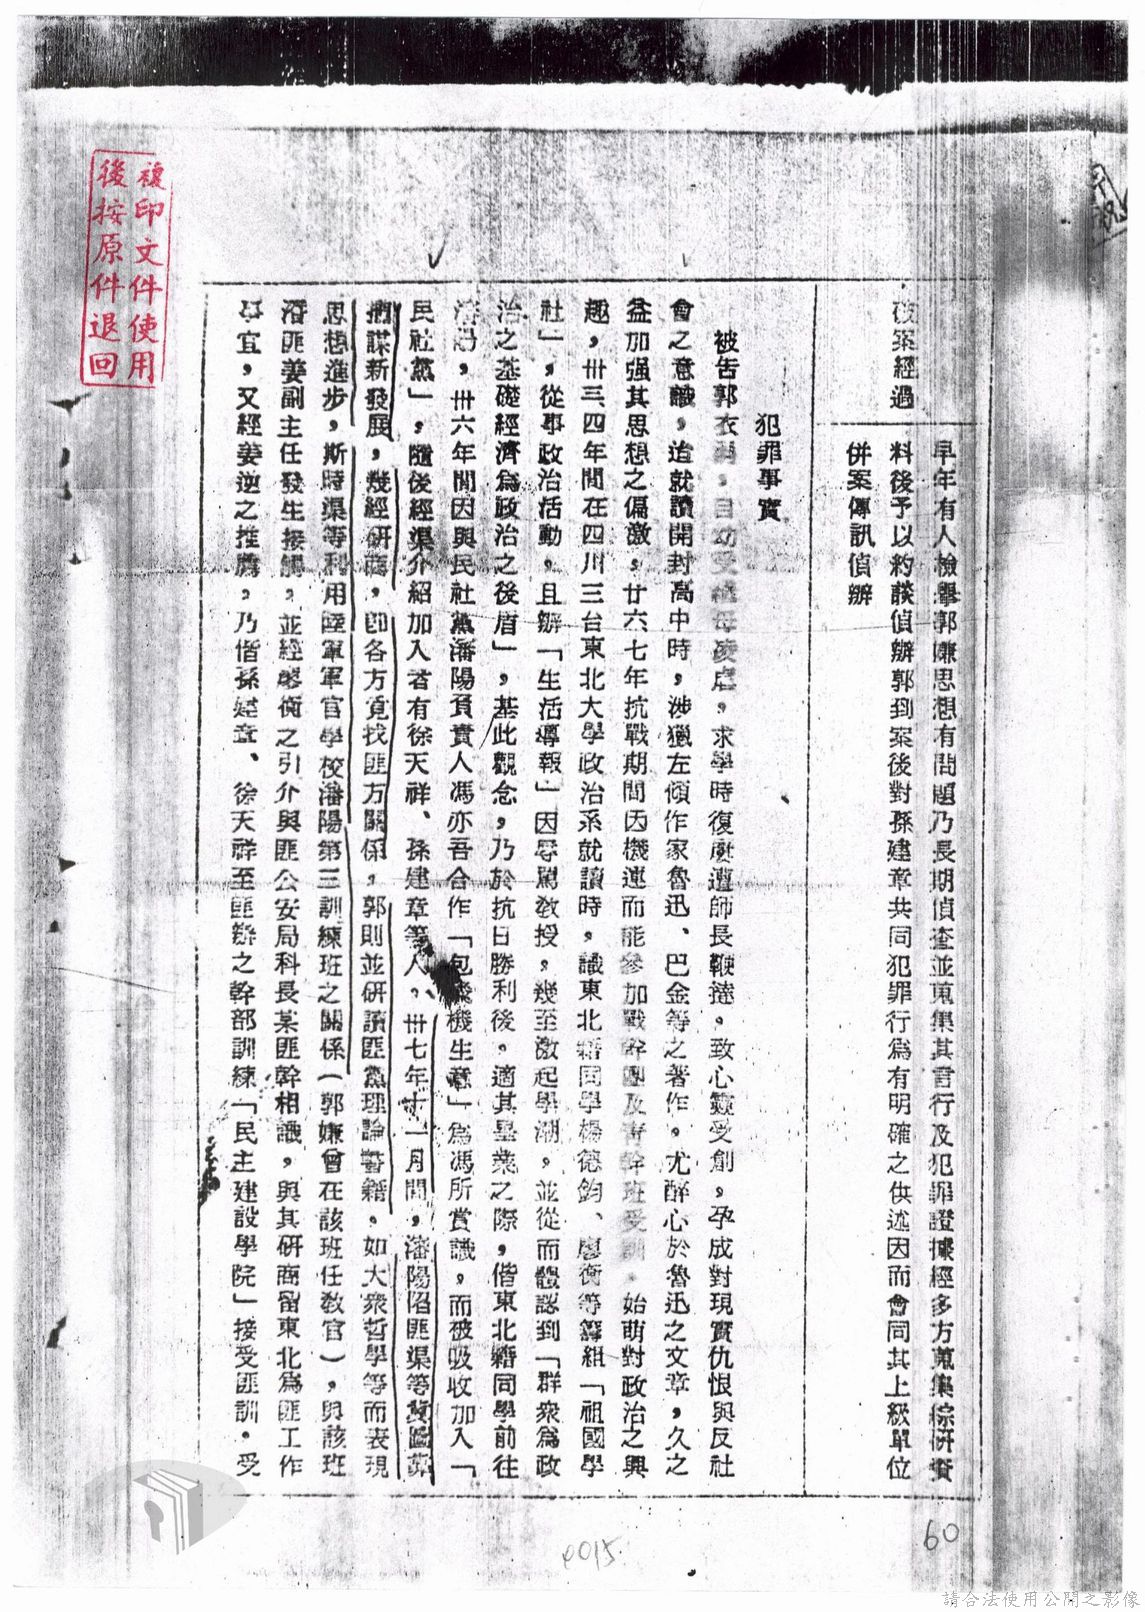 破案經過
早年有人檢舉郭嫌思想有問題乃長期偵查並蒐集其言行及犯罪證據經多方蒐集綜研資
料後予以約談偵辦郭到案後對孫建章共同犯罪行為有明確之供述因而會同其上級單位
併案傳訊偵辦
犯罪事實
被告郭衣洞，自幼受繼母凌虐，求學時復屢遭師長鞭撻，致心靈受創，孕成對現實仇恨與反社
會之意識，迨就讀開封高中時，涉獵左傾作家魯迅、巴金等之著作，尤醉心於魯迅之文章，久之
益加强其思想之偏激，廿六七年抗戰期間因機運而能參加戰幹團及青幹班受訓，始萌對政治之興
趣，卅三、四年間在四川三台東北大學政治系就讀時，識東北籍同學楊德鈞、廖衡等籌組「祖國學
社」，從事政治活動，且辦「生活導報」因辱罵教授，幾至激起學潮，並從而體認到「群衆為政
治之基礎經濟為政治之後盾」，基此觀念，乃於抗日勝利後，適其畢業之際，偕東北籍同學前往
瀋陽，卅六年間因與民社黨瀋陽負責人馮亦吾合作「包飛機生意」為馮所賞識，而被吸收加入「
民社黨」，隨後經渠介紹加入者有徐天祥、孫建章等人，卅七年十一月間，瀋陽陷匪渠等
謀新發展，幾經研商，即各方覓找匪方關係，郭則並研讀匪黨理論書籍，如大衆哲學等而表現
思想進步，斯時渠等利用陸軍軍官學校瀋陽第三訓練班之關係（郭嫌曾在該班任教官），與該班
沿匪姜副主任發生接觸，並經廖衡之引介與匪公安局科長某匪幹相識，與其研商留東北為匪工作
事宜，又經姜逆之推薦，乃偕孫建章、徐天祥至匪辦之幹部訓練「民主建設學院」接受匪訓，受
複印文件使用
後按原件退回
60
0015
請合法使用公開之影像